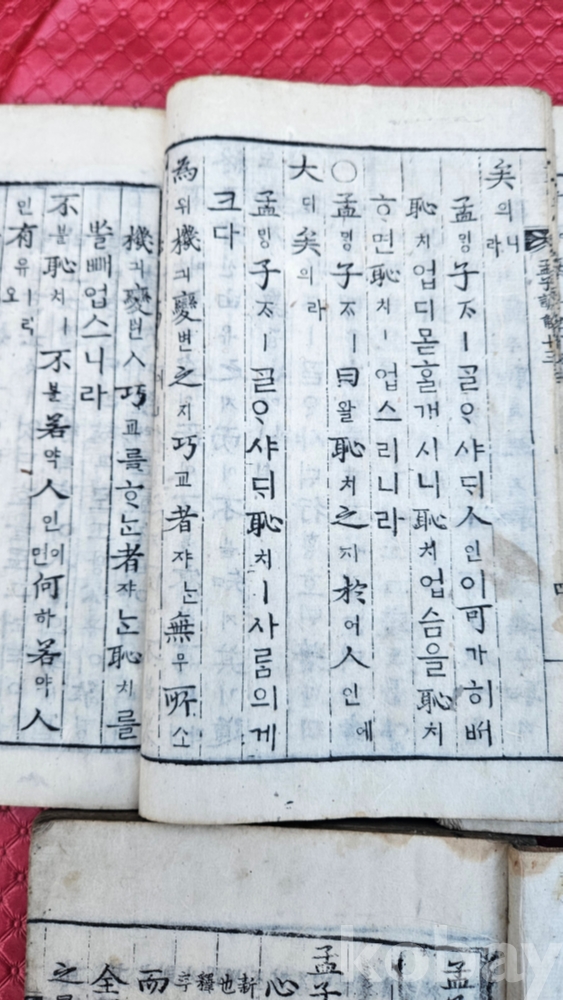 孟子諺解十三
矣의니라
孟ᄆᆡᆼ子ᄌᆞㅣᄀᆞᆯᄋᆞ샤ᄃᆡ人인이可가히ᄡᅥ
恥치업디몯ᄒᆞᆯ개시니恥치업슴을恥치
ᄒᆞ면恥치ㅣ업스리니라
○孟ᄆᆡᆼ子ᄌᆞㅣ曰왈恥치之지於어人인에
大대矣의라
孟ᄆᆡᆼ子ᄌᆞㅣᄀᆞᆯᄋᆞ샤ᄃᆡ恥치ㅣ사ᄅᆞᆷ의게
크다
為위機긔變변之지巧교者쟈ᄂᆞᆫ無무所소
機긔變변ㅅ巧교를ᄒᆞᄂᆞᆫ者쟈ᄂᆞᆫ恥치를
ᄡᅳᆯ빼업스니라
不블恥치ㅣ不블若약人인이면何하若약人
인有유ㅣ리오
孟
孟子
心
而
全
之
kobay